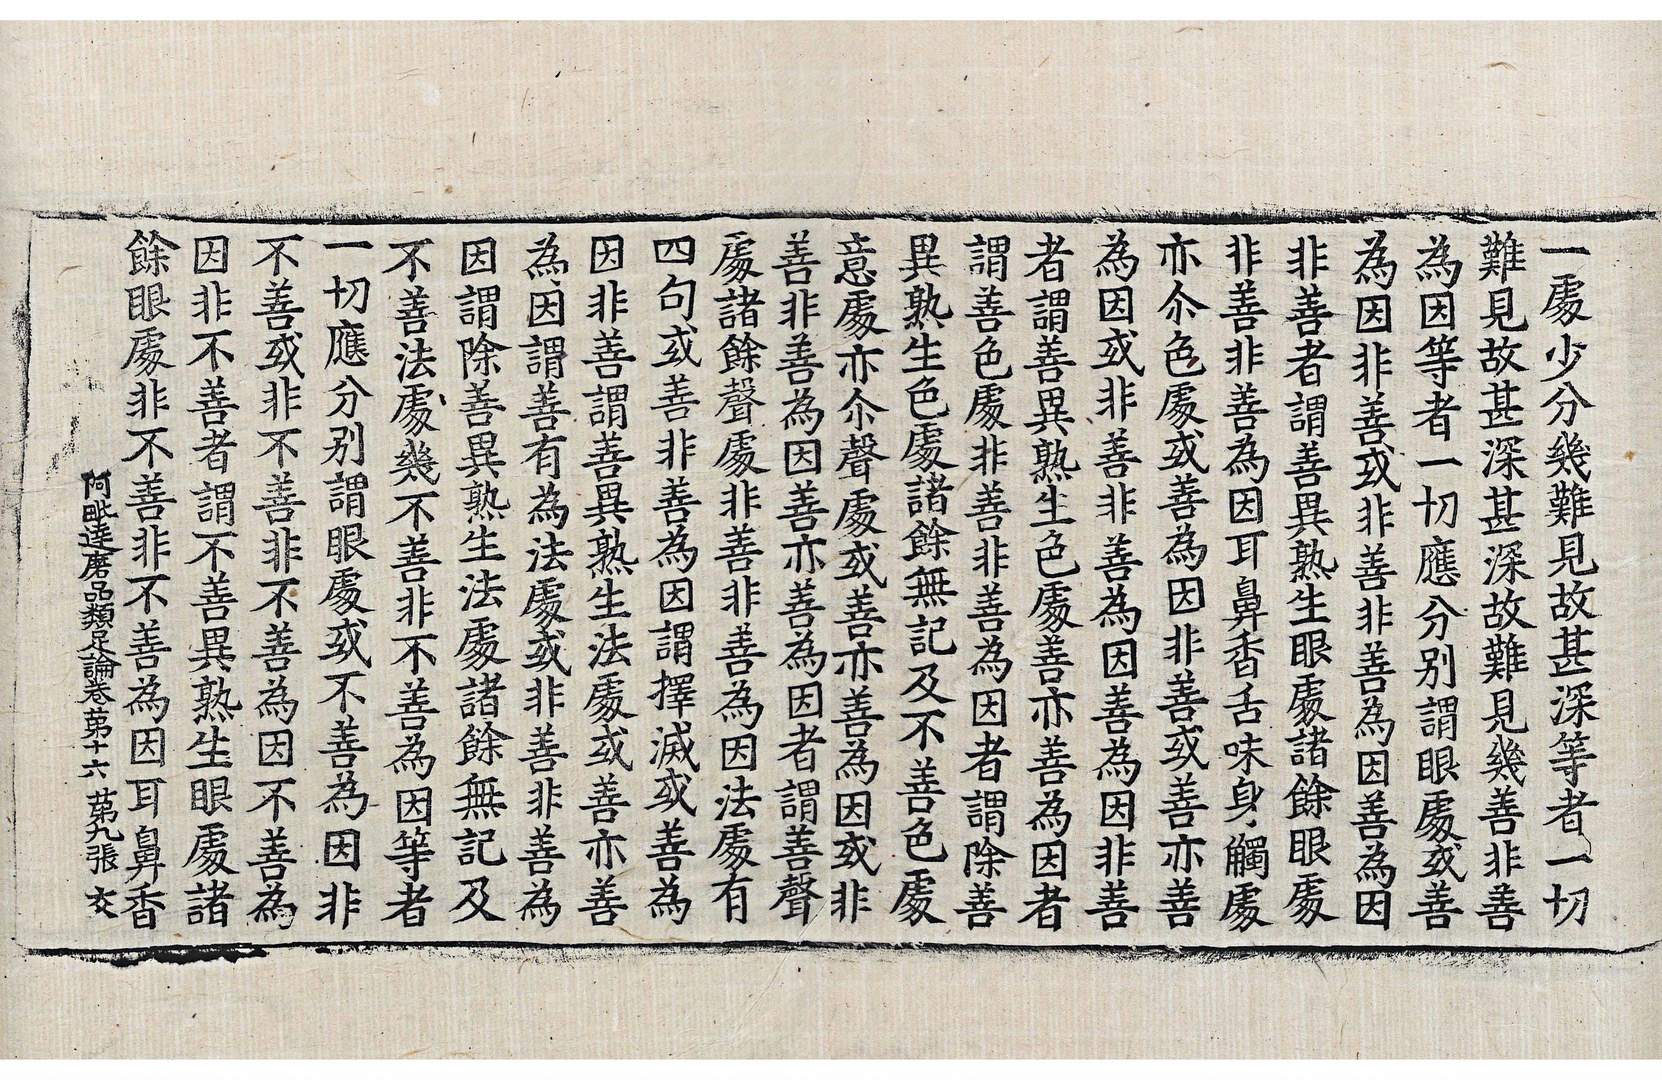 一處少分幾難見故甚深等者一切
難見故甚深甚深故難見幾善非善
為因等者一切應分别謂眼處或善
為因非善或非善非善為因善為因
非善者謂善異熟生眼處諸餘眼處
非善非善為因耳鼻香舌味身觸處
亦尒色處或善為因非善或善亦善
為因或非善非善為因善為因非善
者謂善異熟生色處善亦善為因者
謂善色處非善非善為因者謂除善
異熟生色處諸餘無記及不善色處
意處亦尒聲處或善亦善為因或非
善非善為因善亦善為因者謂善聲
處諸餘聲處非善非善為因法處有
四句或善非善為因謂擇滅或善為
因非善謂善異熟生法處或善亦善
為因謂善有為法處或非善非善為
因謂除善異熟生法處諸餘無記及
不善法處幾不善非不善為因等者
一切應分别謂眼處或不善為因非
不善或非不善非不善為因不善為
因非不善者謂不善異熟生眼處諸
餘眼處非不善非不善為因耳鼻香
阿毗達磨品類足論卷苐十六 苐九張